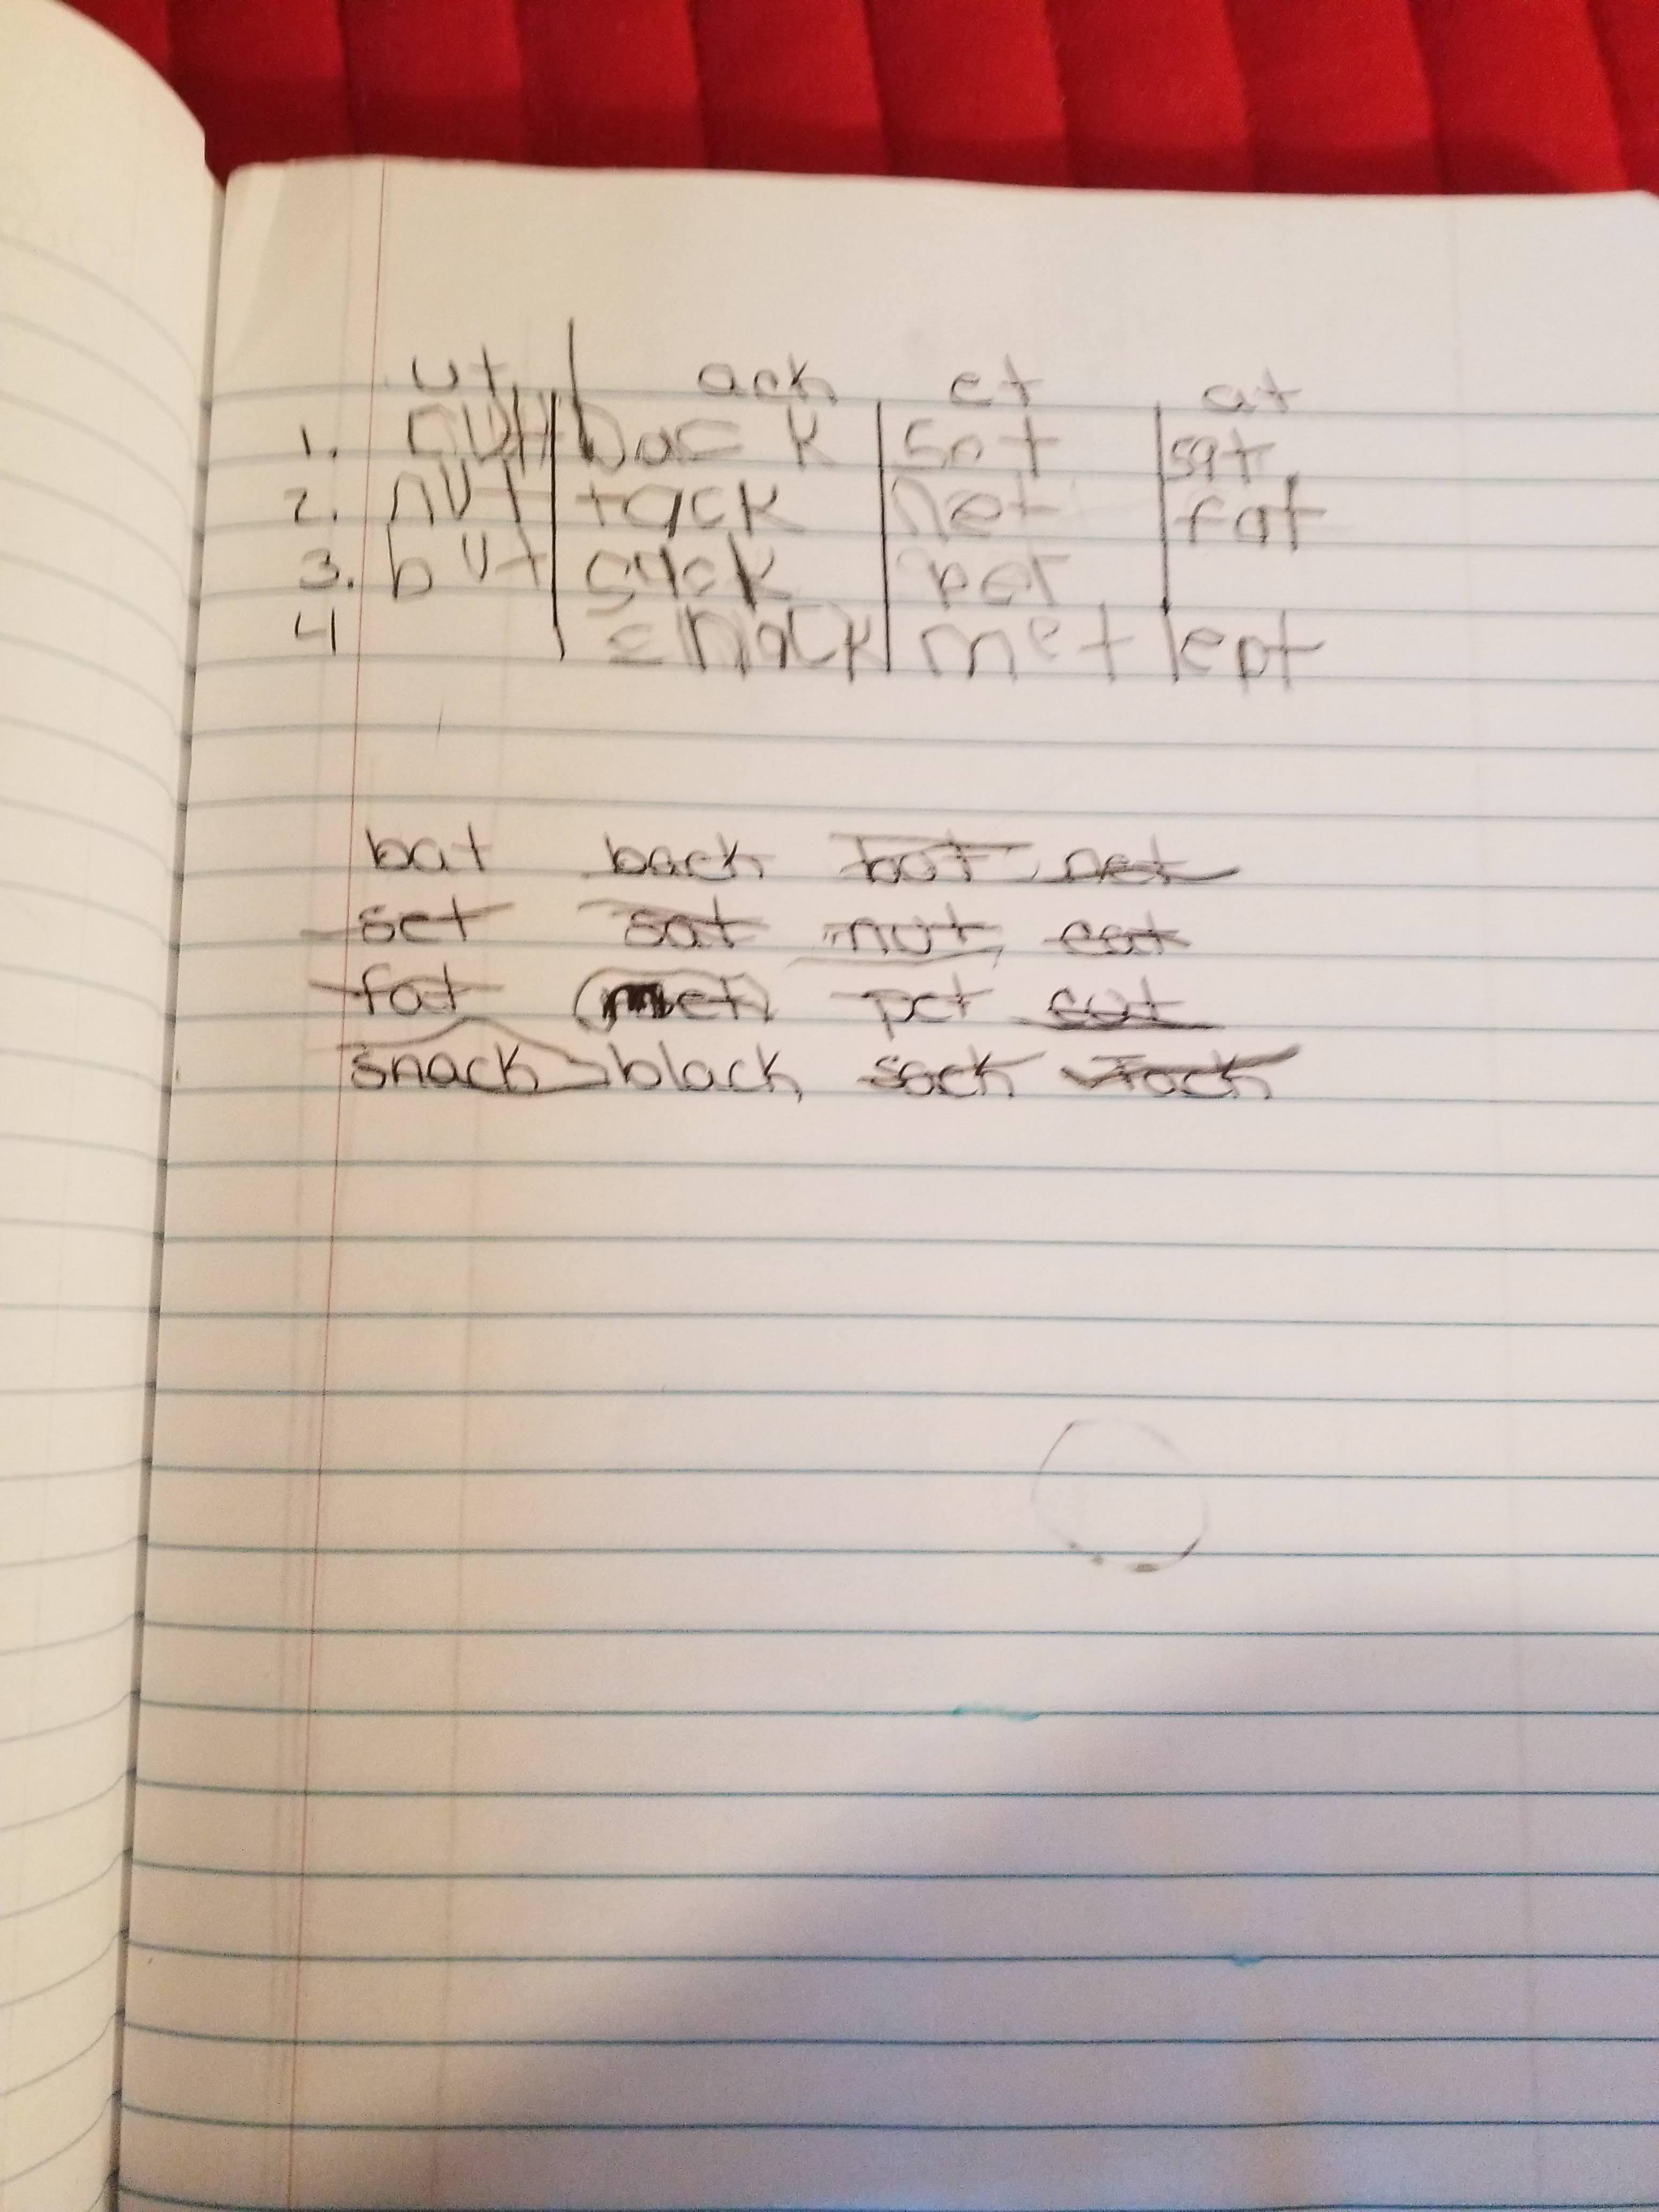 ut ack et at
1. back set sat
2. nut tack net fat
3. but sack pet
4 snack met
bat back but net
set sat nut cat
fat met pet cut
snack black sack tack